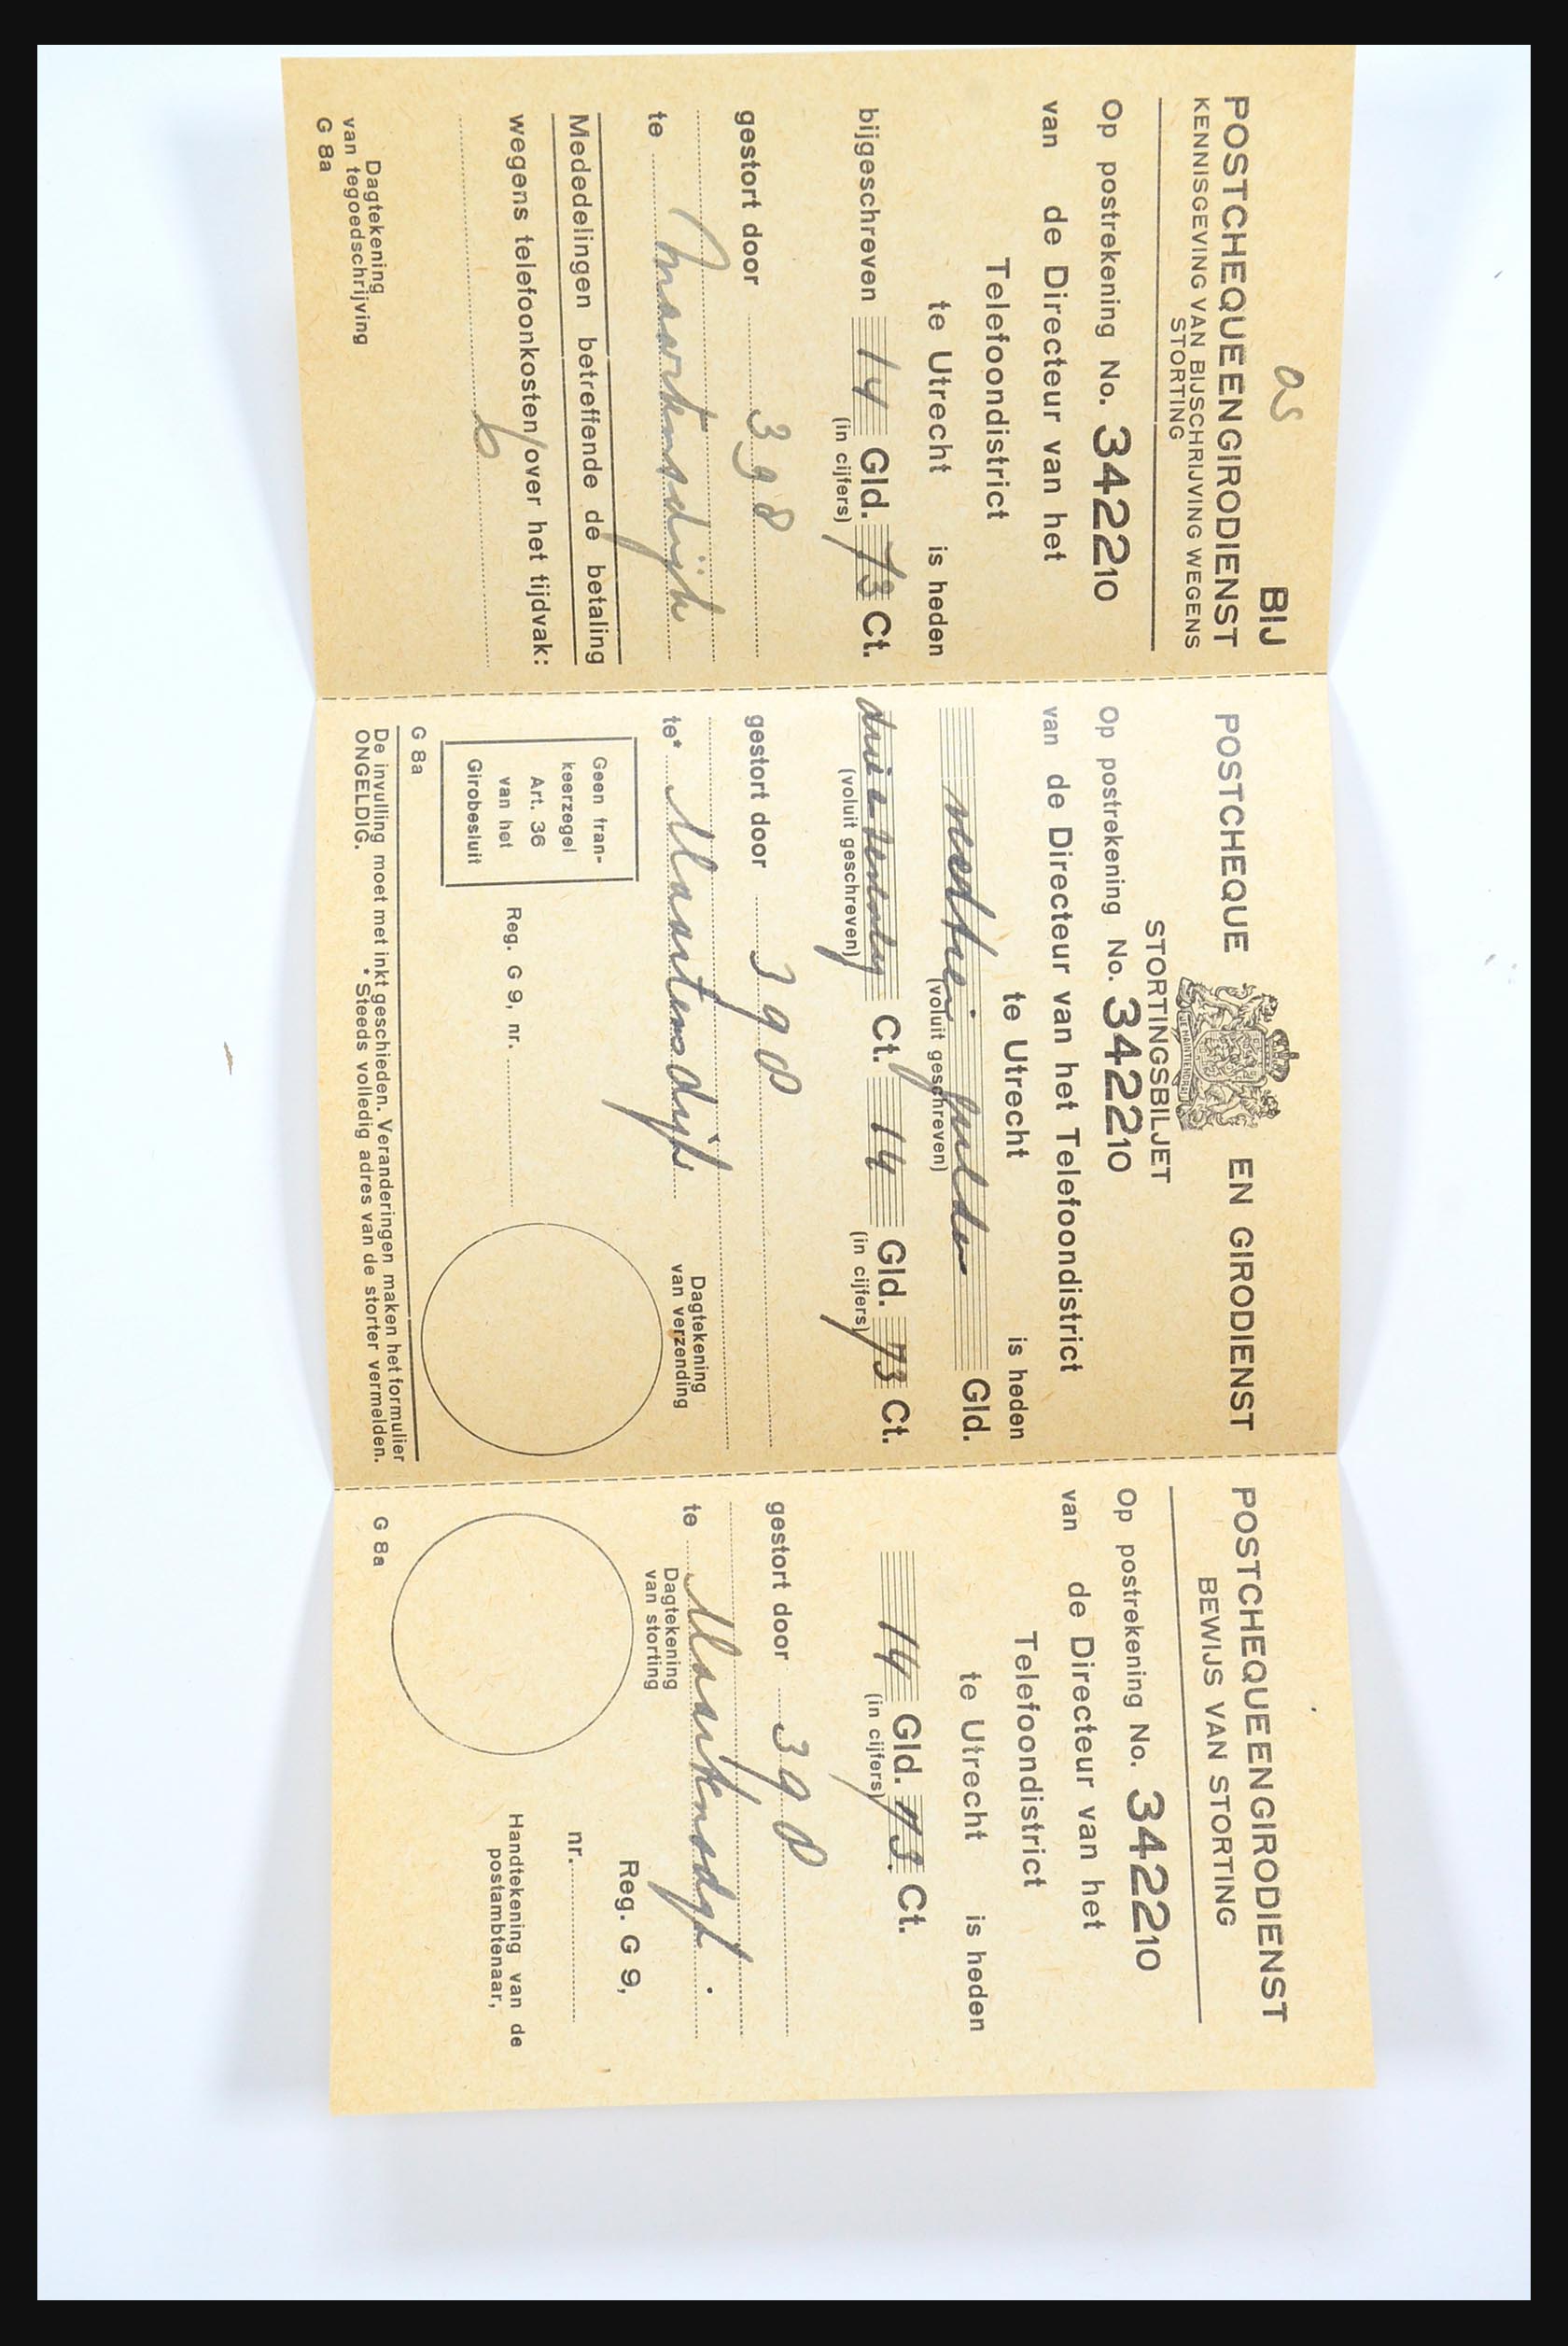 as
BIJ
POSTCHEQUE EN GIRODIENST
KENNISGEVING VAN BIJSCHRIJVING WEGENS
STORTING
Op postrekening No. 342210
van de Directeur van het
Telefoondistrict
te Utrecht is heden
bijgeschreven 14 Gld. 73 Ct.
(in cijfers)
gestort door 398
te Maartensdijk
Mededelingen betreffende de betaling
wegens telefoonkosten/over het tijdvak:
6
Dagtekening
van tegoedschrijving
G 8a
POSTCHEQUE EN GIRODIENST
JE MAINTIENDRAI
STORTINGSBILJET
Op postrekening No. 342210
van de Directeur van het Telefoondistrict
te Utrecht is heden
veertien gulden Gld.
(voluit geschreven)
drie en zeventig Ct. 14 Gld. 73 Ct.
(voluit geschreven) (in cijfers)
gestort door 398
te* Maartensdijk
Dagtekening
van verzending
Geen fran-
keerzegel
Art. 36
van het
Girobesluit
Reg. G 9, nr.
G 8a
De invulling moet met inkt geschieden. Veranderingen maken het formulier
ONGELDIG. * Steeds volledig adres van de storter vermelden.
POSTCHEQUE EN GIRODIENST
BEWIJS VAN STORTING
Op postrekening No. 342210
van de Directeur van het
Telefoondistrict
te Utrecht is heden
14 Gld. 73. Ct.
(in cijfers)
gestort door 398
te Maartensdijk.
Dagtekening
van storting
Reg. G 9,
nr.
Handtekening van de
postambtenaar,
G 8a